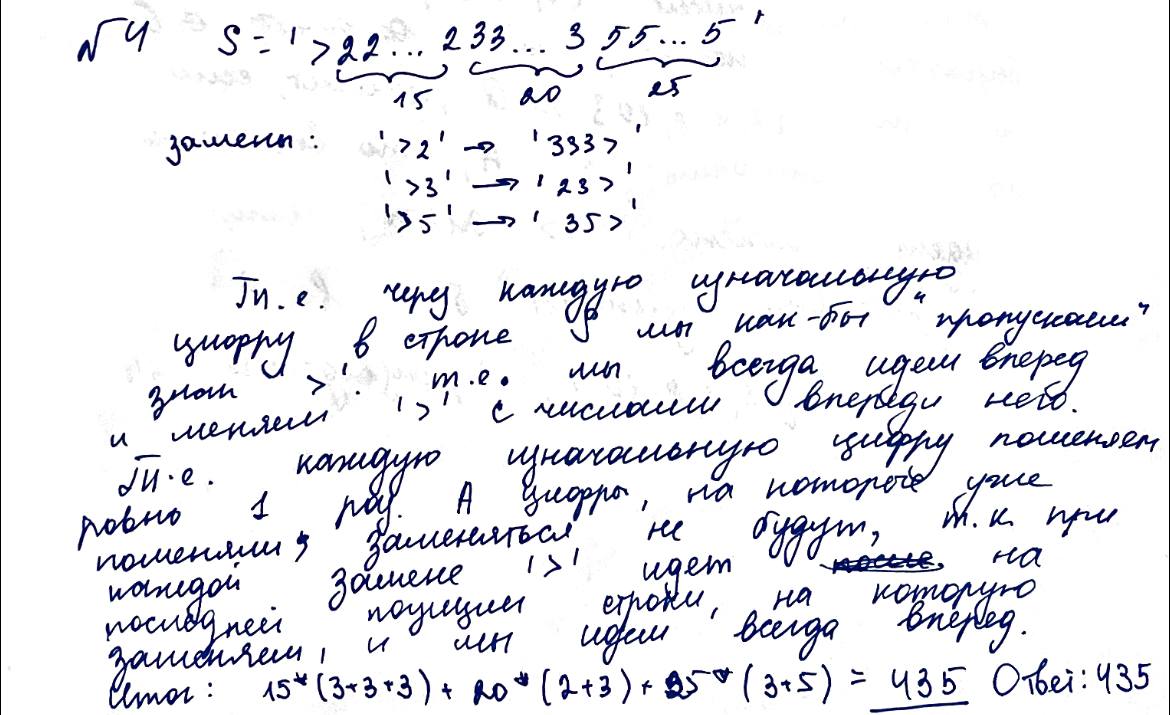 №4 S = '>22...233...355...5'
15 20 25
замены: '>2' → '333>'
'>3' → '23>'
'>5' → '35>'
Т.е. через каждую изначальную
цифру в строке S мы как-бы "пропускаем"
знак '>'. т.е. мы всегда идем вперед
и меняем '>' с числами впереди него.
Т.е. каждую изначальную цифру поменяем
ровно 1 раз. А цифры, на которые уже
поменяли, заменяться не будут, т.к. при
каждой замене '>' идет на
последней позиции строки, на которую
заменяем, и мы идем всегда вперед.
Итог: 15*(3+3+3) + 20*(2+3) + 25*(3+5) = 435 Ответ: 435